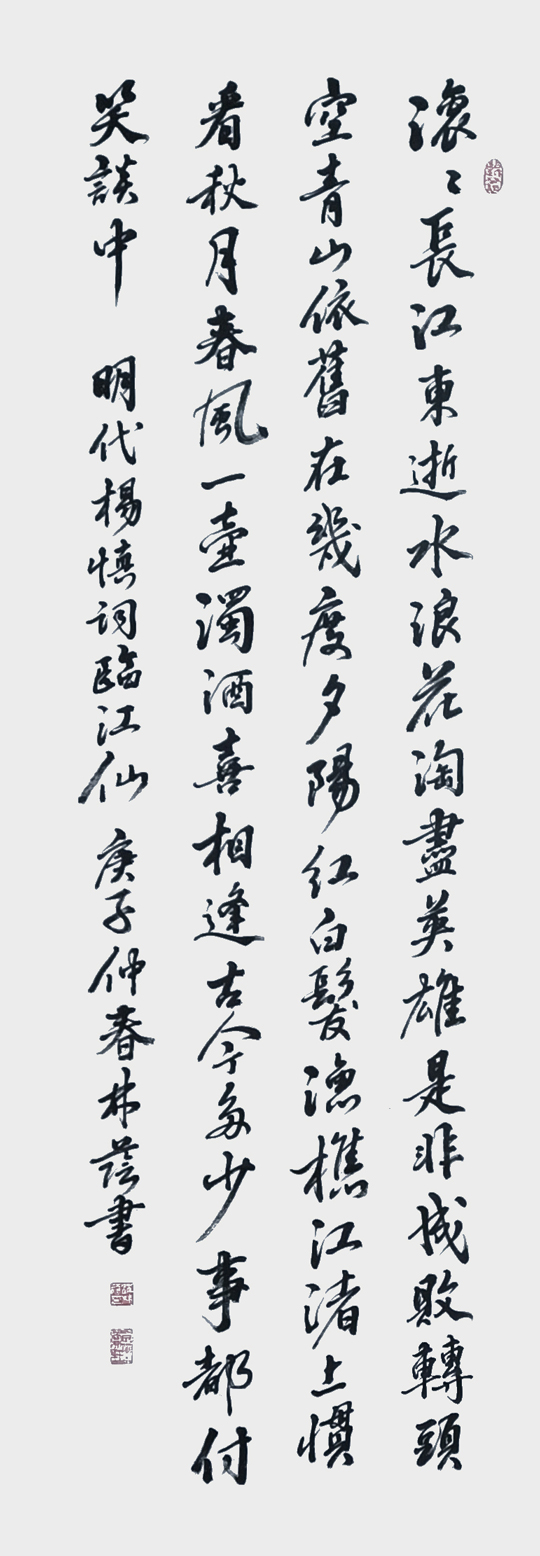 滚〻長江東逝水浪花淘盡英雄是非成敗轉頭
空青山依舊在幾度夕陽紅白髮漁樵江渚上慣
看秋月春風一壺濁酒喜相逢古今多少事都付
笑談中 明代楊慎詞臨江仙 庚子仲春林蔭書